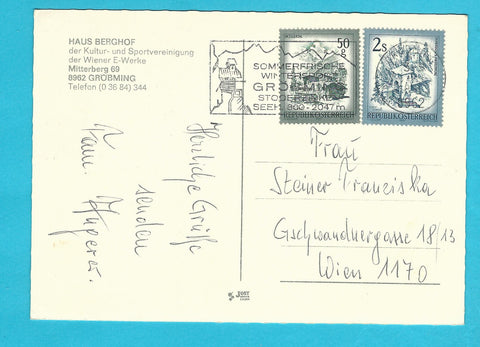 HAUS BERGHOF
der Kultur- und Sportvereinigung
der Wiener E-Werke
Mitterberg 69
8962 GRÖBMING
Telefon (0 36 84) 344
SOMMERFRISCHE
WINTERSPORT
GRÖBMING
STODERZINKEN
SEEH. 800-2047 m
50
g
REPUBLIK ÖSTERREICH
2s
REPUBLIK ÖSTERREICH
Herzliche Grüße
senden
Fam.
Frau
Steiner Franziska
Gschwandnergasse 18/13
Wien 1170